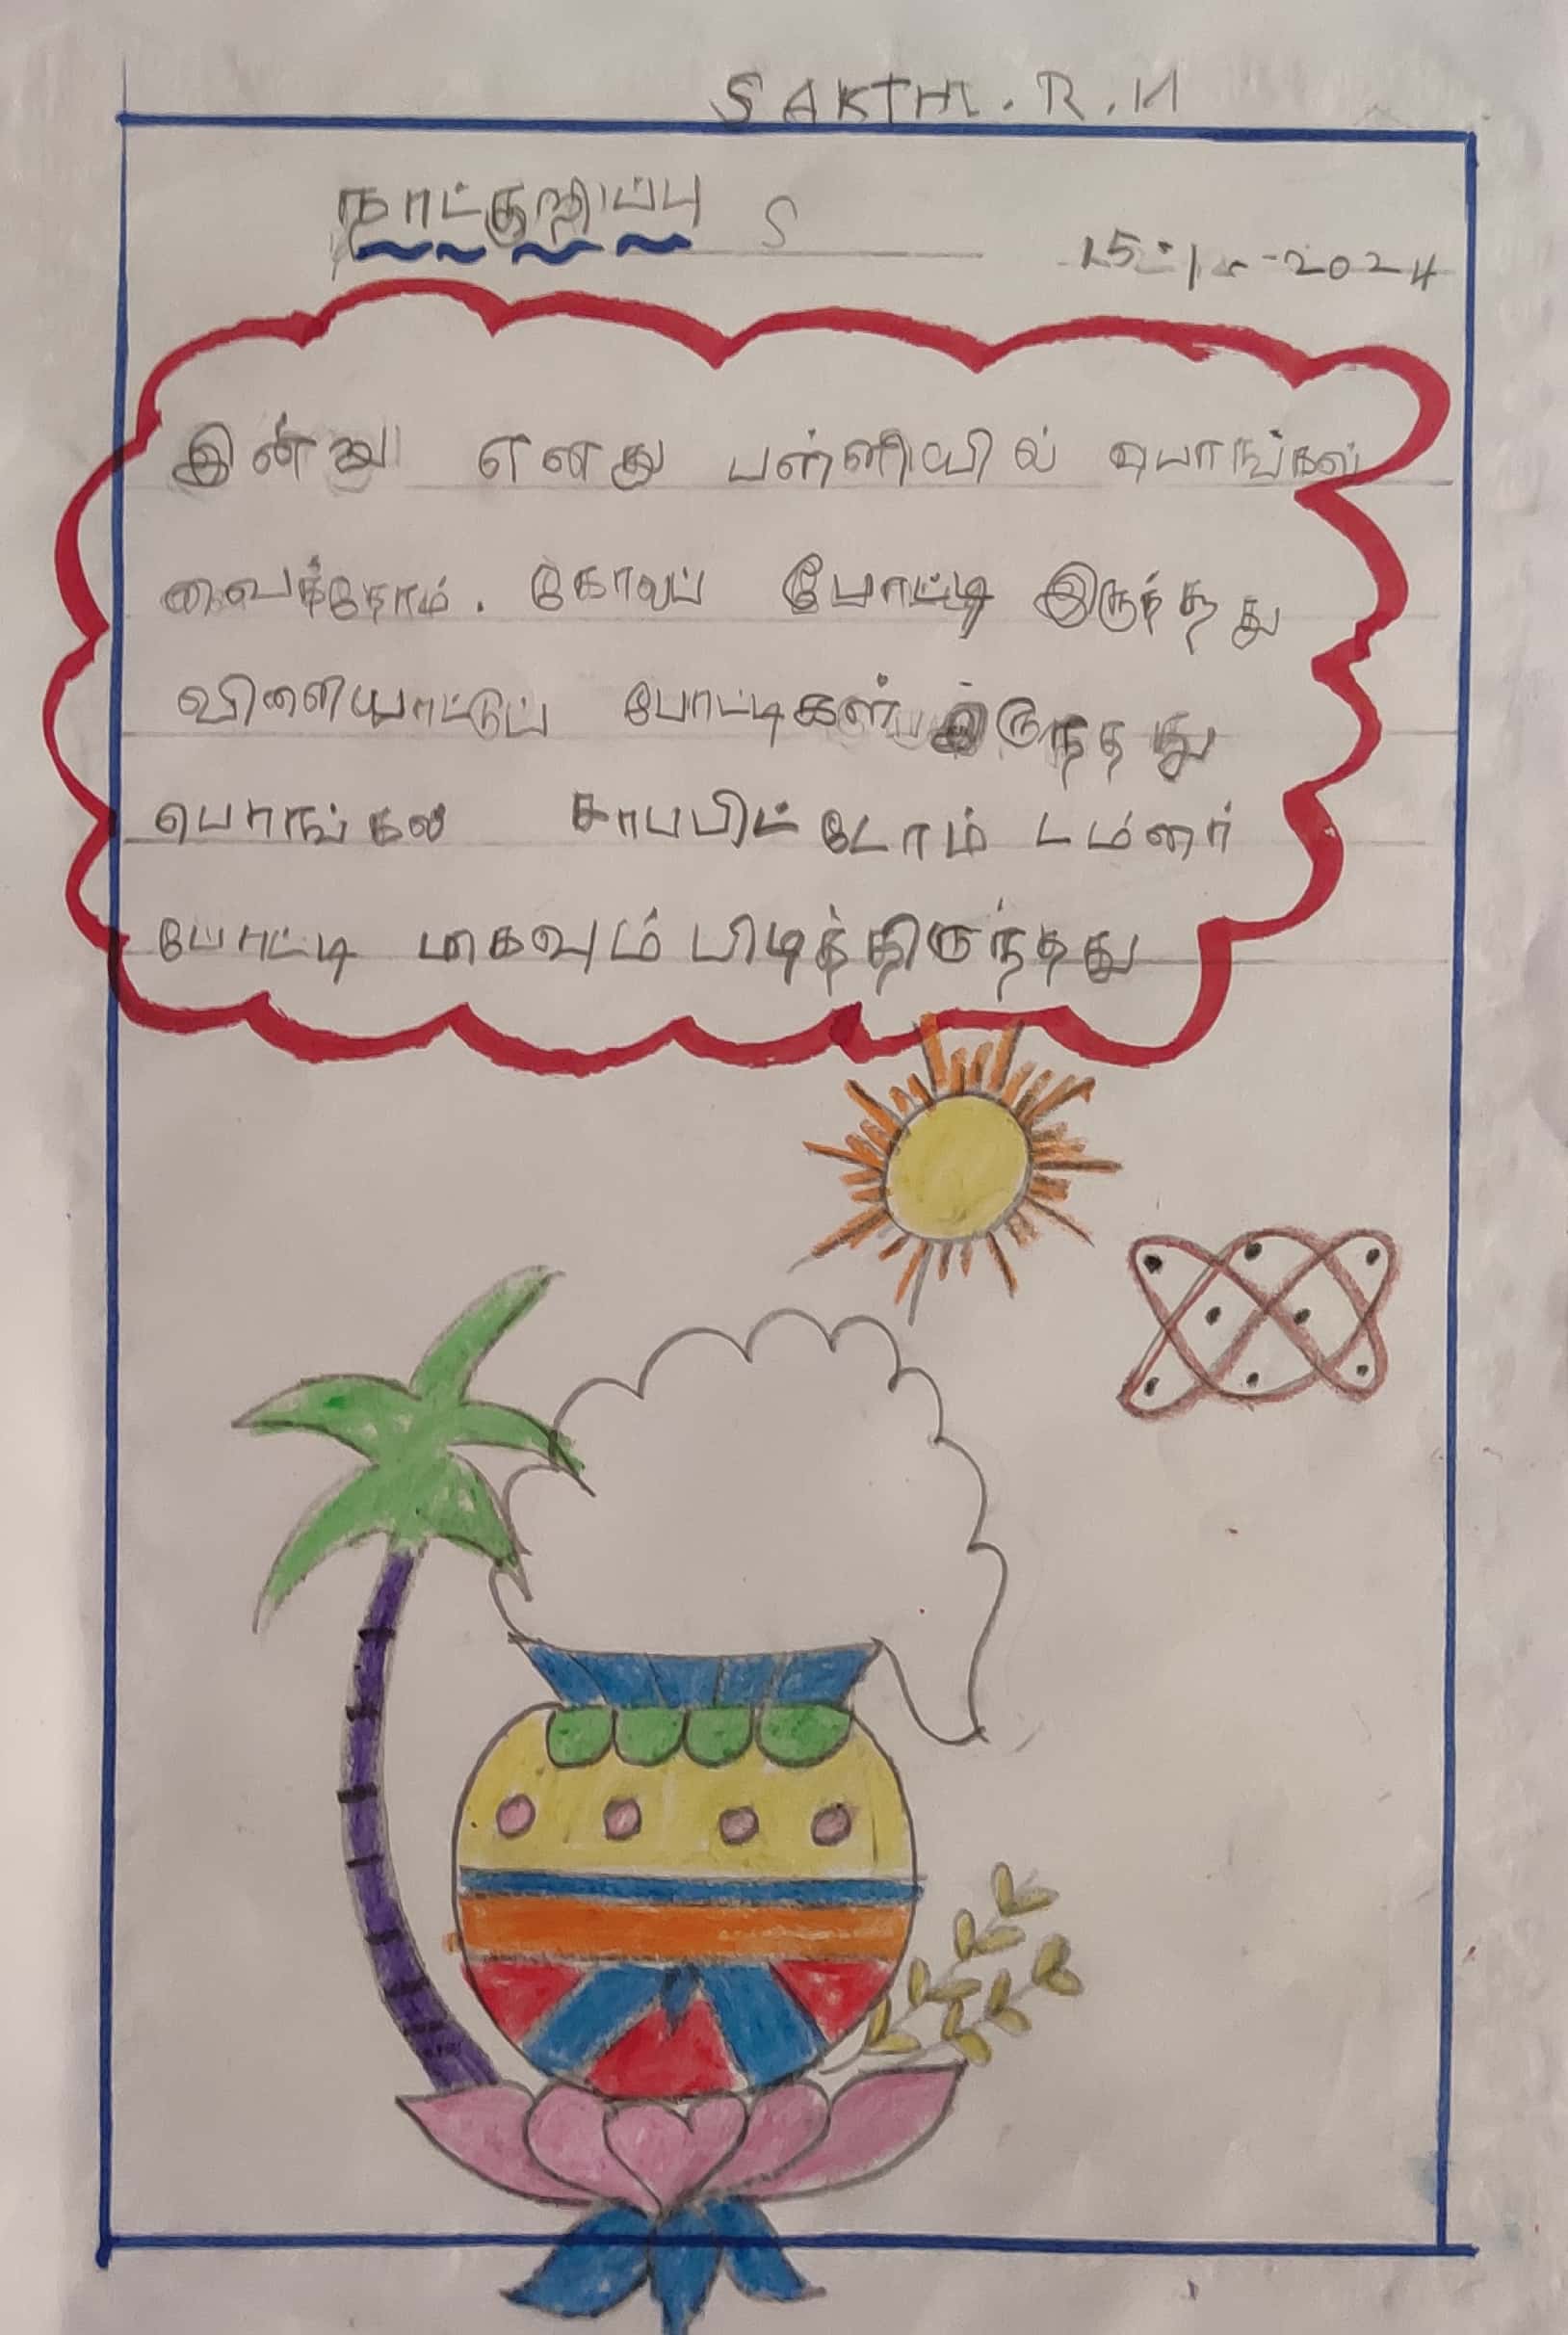 SAKTHI. R. M
நாட்குறிப்பு S
2024
இன்று எனது பள்ளியில் பொங்கல்
வைத்தோம். கோலப் போட்டி இருந்தது
விளையாட்டுப் போட்டிகள் இருந்தது
பொங்கல் சாப்பிட்டோம்
போட்டி மிகவும் பிடித்திருந்தது